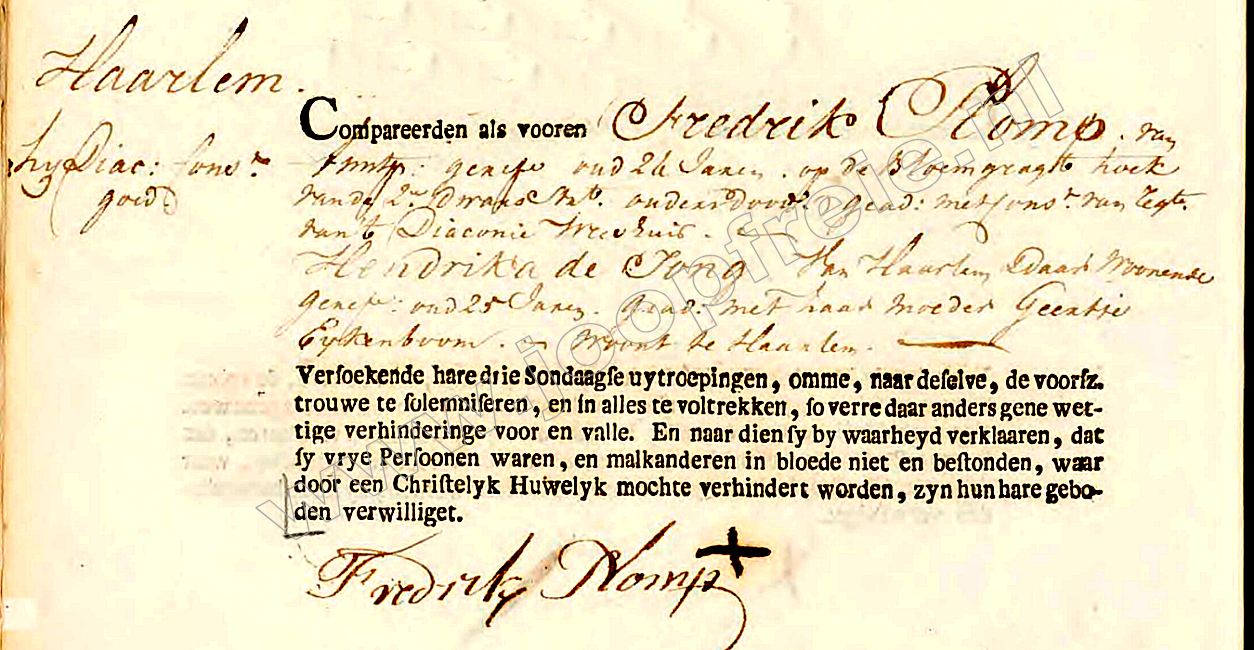 Haarlem.
Compareerden als vooren Fredrik Plomp. van
hy Diac: Cons.^te goed
Amstp: gerefe oud 24 Jaren. op de Bloemgragt hoek
van de 2.^e dwars ouders dood. gead: met Cons.^t van Regt.^n
van't Diaconie Weeshuis.
Hendrika de Jong Van Haarlem, & daar Woonende
gerefe: oud 25 Jaren. gead: met haar moeder Geertje
Eykenboom. Woont te Haarlem.
Verſoekende hare drie Sondaagſe uytroepingen, omme, naar deſelve, de voorſz.
trouwe te ſolemniſeren, en in alles te voltrekken, ſo verre daar anders gene wet-
tige verhinderinge voor en valle. En naar dien ſy by waarheyd verklaaren, dat
ſy vrye Perſoonen waren, en malkanderen in bloede niet en beſtonden, waar
door een Chriſtelyk Huwelyk mochte verhindert worden, zyn hun hare gebo-
den verwilliget.
Fredrik Plomp
www.joopfreie.nl